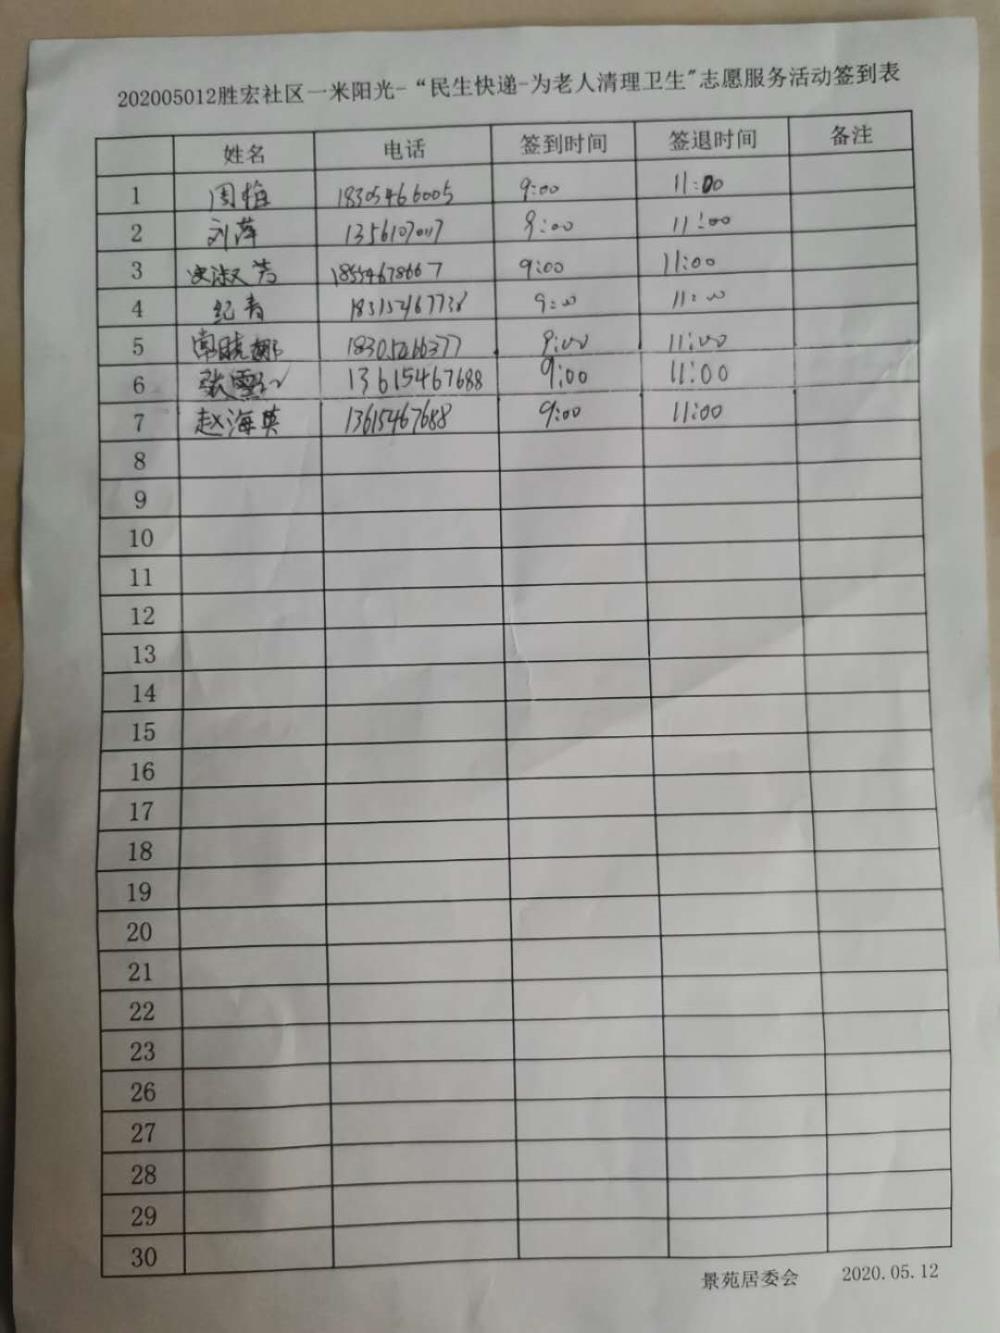 202005012胜宏社区一米阳光-“民生快递-为老人清理卫生"志愿服务活动签到表
姓名 电话 签到时间 签退时间 备注
1 周梅 18305466005 9:00 11:00
2 刘萍 9:00 11:00
3 淑芳 18554678667 9:00 11:00
4 纪青 9:00 11:00
5 晓娜 9:00 11:00
6 张雪 13615467688 9:00 11:00
7 赵海英 13615467688 9:00 11:00
8
9
10
11
12
13
14
15
16
17
18
19
20
21
22
23
26
27
28
29
30
景苑居委会 2020.05.12